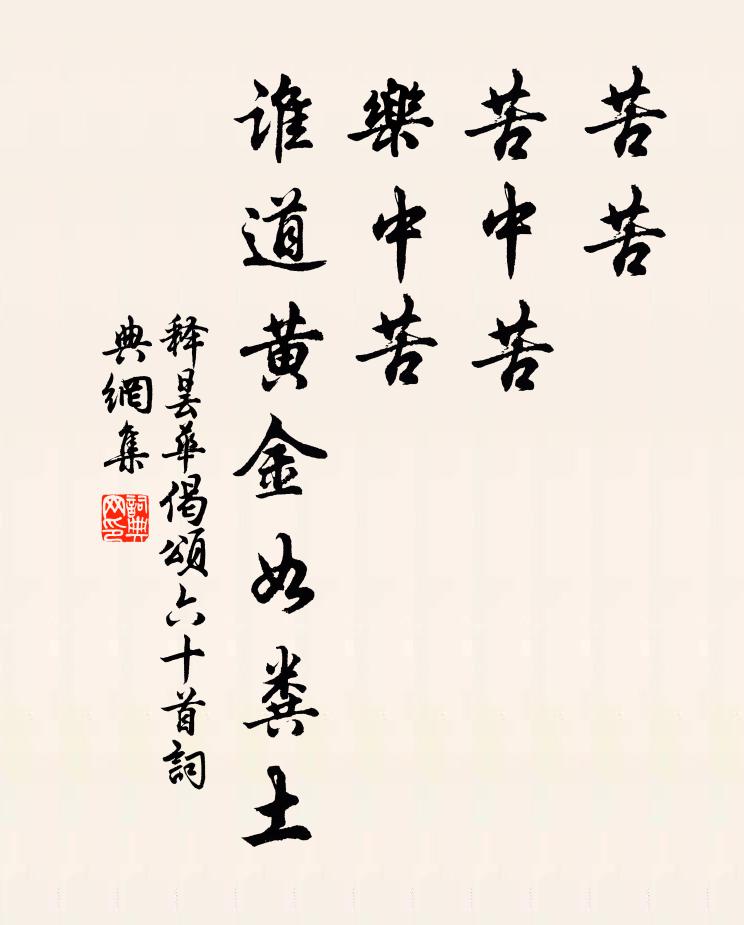 苦苦
苦中苦
樂中苦
誰道黃金如糞土
释曇華偈頌六十首詞
典網集
詞典
网印